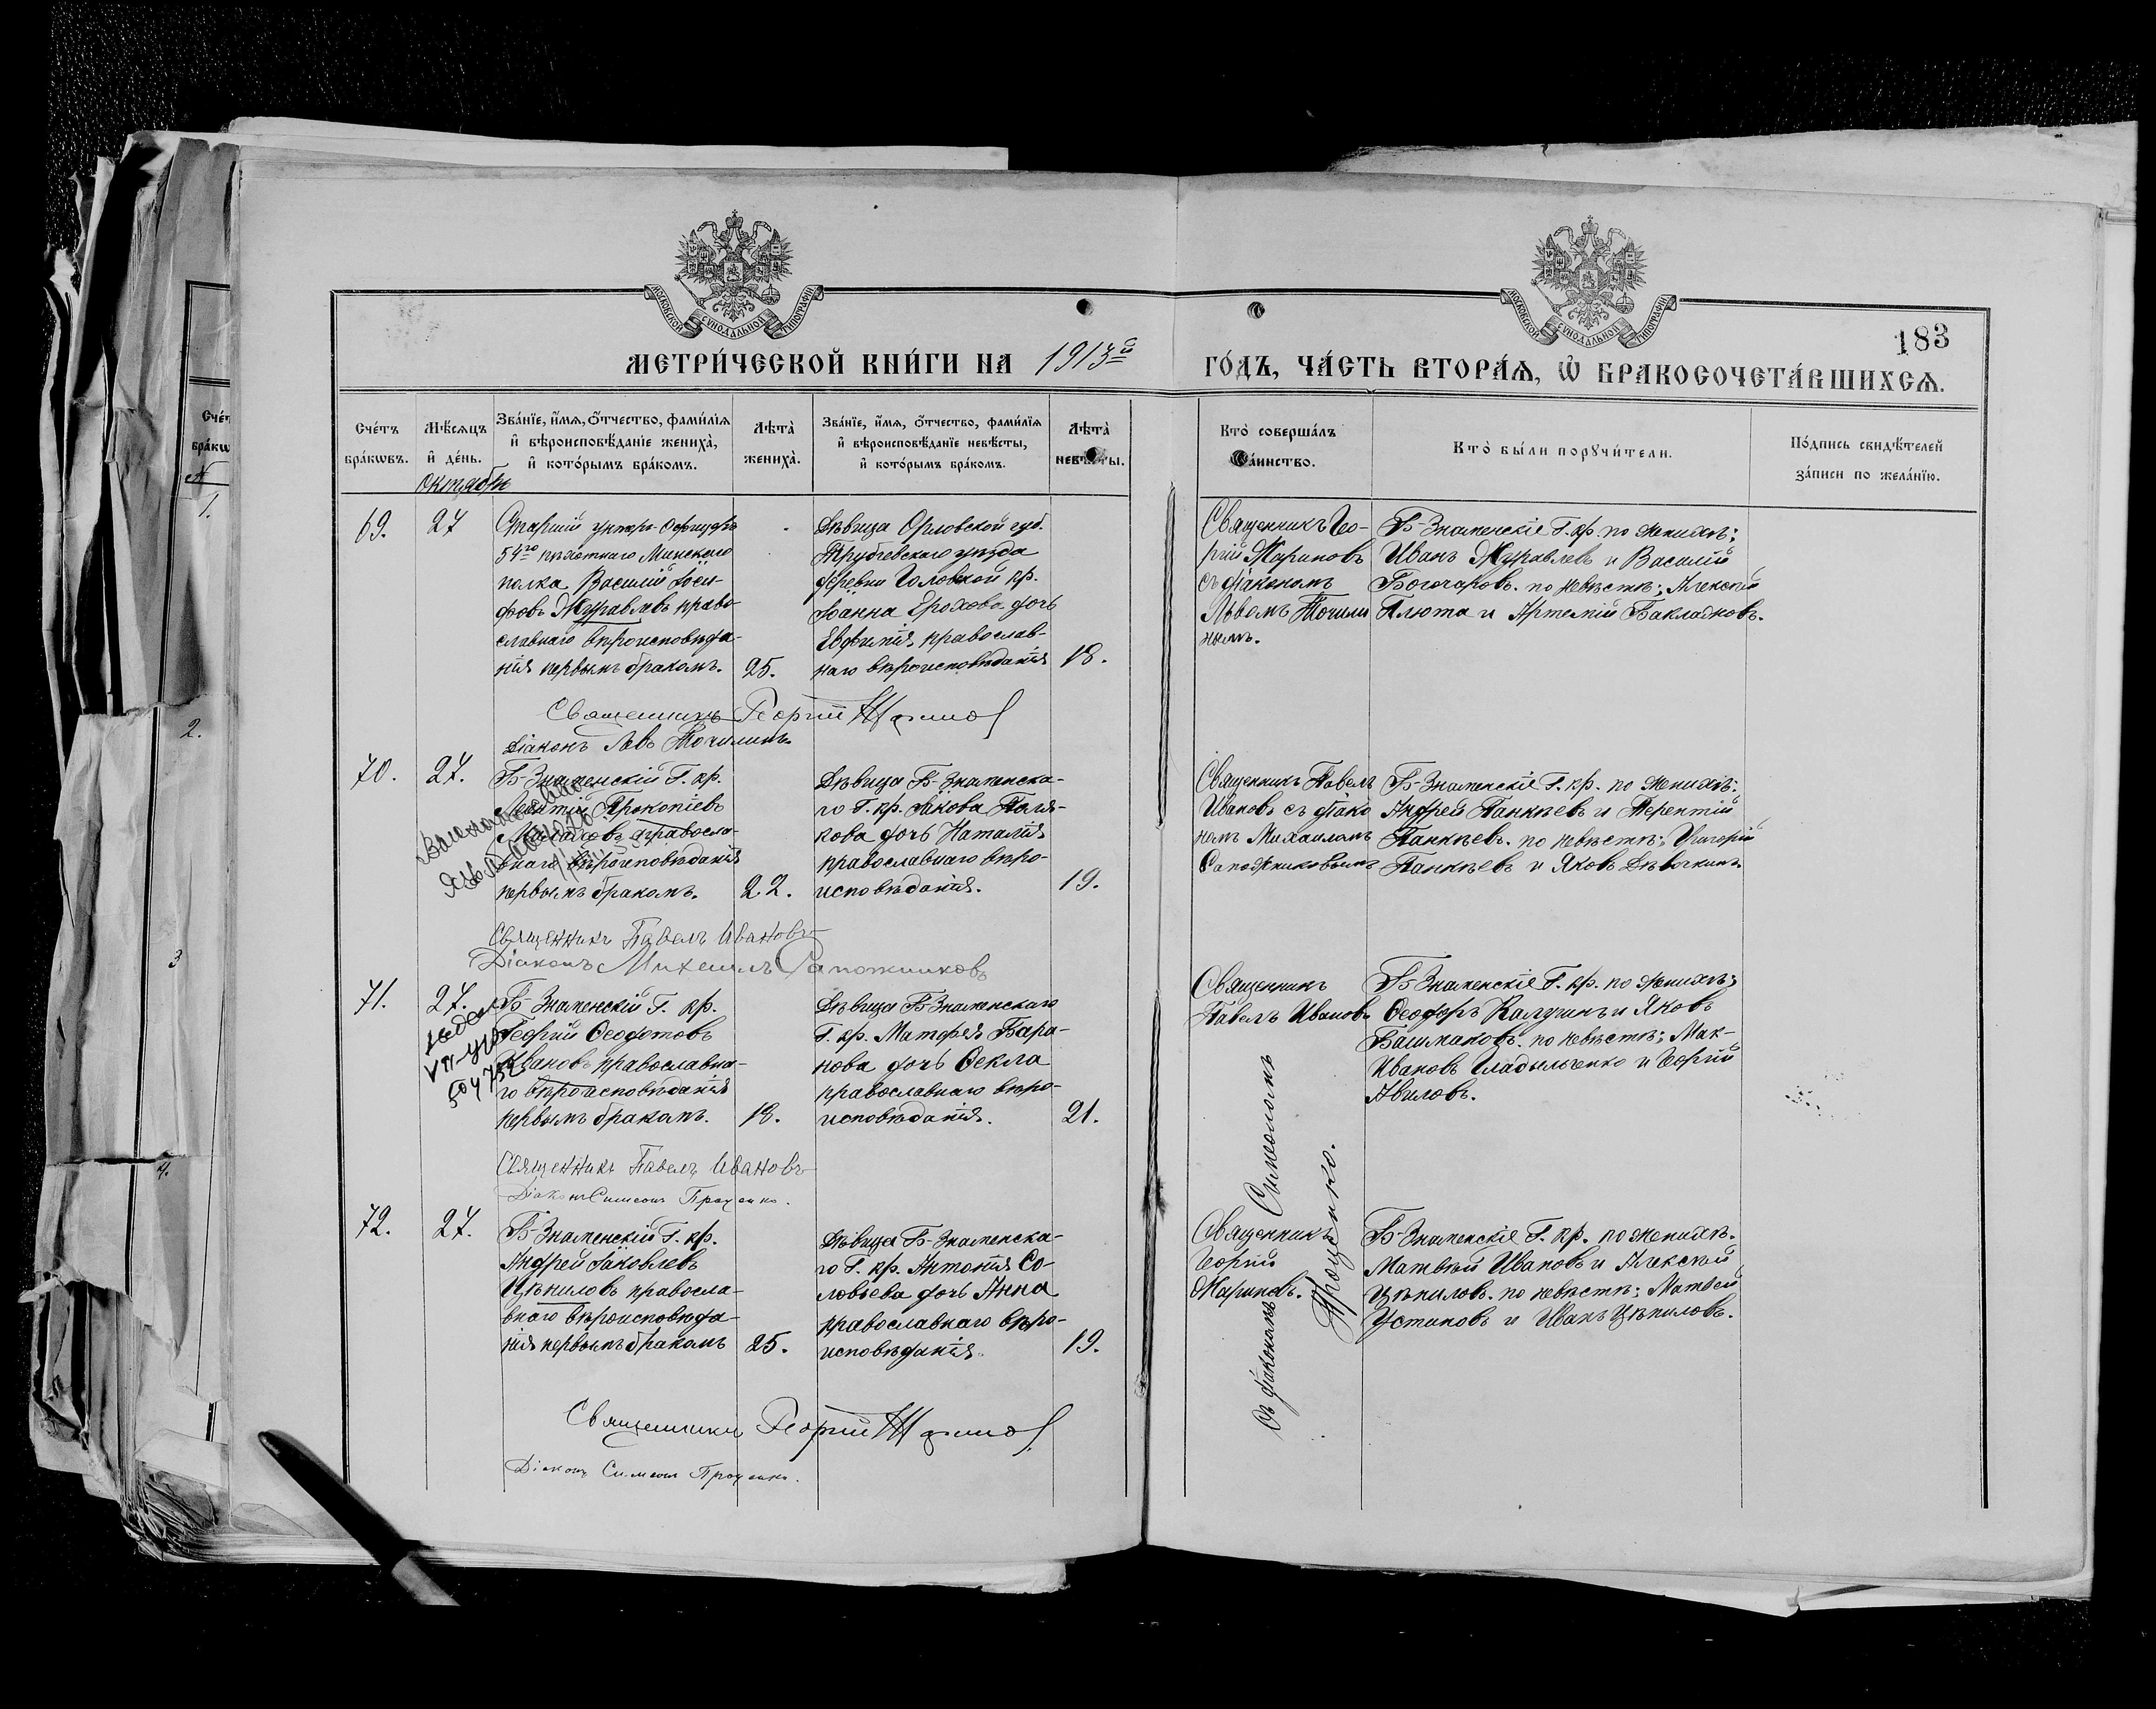 МОСКОВСКОЙ СѴНОДАЛЬНОЙ ТИПОГРАФІИ
МОСКОВСКОЙ СѴНОДАЛЬНОЙ ТИПОГРАФІИ
183
МЕТРИ́ЧЕСКОЙ КНИ́ГИ НА 1913й ГО́ДЪ, ЧА́СТЬ ВТОРА́Ѧ, Ѽ БРАКОСОЧЕТА́ВШИХСѦ.
Сче́тъ бра́кѡвъ.
Мѣ́сѧцъ и҆ де́нь.
Зва́нїе, и҆́мѧ, ѻ҆́тчество, фами́лїѧ и҆ вѣроисповѣ́данїе жениха̀, и҆ кото́рымъ бра́комъ.
Лѣ́та̀ жениха̀.
Зва́нїе, и҆́мѧ, ѻ҆́тчество, фами́лїѧ и҆ вѣроисповѣ́данїе невѣ́сты, и҆ кото́рымъ бра́комъ.
Лѣ́та̀ невѣ́сты.
Кто̀ соверша́лъ та́инство.
Кто̀ бы́ли порꙋчи́тели.
По́дпись свидѣ́телей за́писи по жела́нїю.
Октябрь
69.
27
Старшій унтеръ-офицеръ
54го пѣхотнаго Минскаго
полка Василій Іоси-
фовъ Журавлевъ право-
славнаго вѣроисповѣда-
нія первымъ бракомъ.
25.
Дѣвица Орловской губ.
Трубчевскаго уѣзда
деревни Головской кр.
Іоанна Ерохова дочь
Евфимія православ-
наго вѣроисповѣданія
18.
Священникъ Гео-
ргій Жариновъ
съ діакономъ
Львомъ Точили
нымъ.
Б-Знаменскіе Г. кр. по женихѣ;
Иванъ Журавлевъ и Василій
Богочаровъ. по невѣстѣ; Алексій
Плюта и Артемій Баклановъ.
Священникъ Георгій Жариновъ
Діаконъ Левъ Точилинъ.
70.
27.
Б-Знаменскій Г. кр.
Прокопіевъ
правосла-
внаго вѣроисповѣданія
первымъ бракомъ.
22.
Дѣвица Б-Знаменска-
го Г. кр. Іакова
дочь Наталія
православнаго вѣро-
исповѣданія.
19.
Священникъ Павелъ
Ивановъ съ діако
номъ Михаиломъ
Сапожниковымъ
Б-Знаменскіе Г. кр. по женихѣ;
Андрей Панкѣевъ и Терентій
Панкѣевъ. по невѣстѣ; Григорій
Панкѣевъ и Яковъ Дѣвочкинъ.
Священникъ Павелъ Ивановъ
Діаконъ Михаилъ Сапожниковъ
71.
27.
Б-Знаменскій Г. кр.
Георгій Ѳеодотовъ
Ивановъ православна-
го вѣроисповѣданія
первымъ бракомъ.
18.
Дѣвица Б-Знаменскаго
Г. кр. Матфея Бара-
нова дочь Ѳекла
православнаго вѣро-
исповѣданія.
21.
Священникъ
Павелъ Ивановъ
Б-Знаменскіе Г. кр. по женихѣ;
Ѳеодоръ Калугинъ и Яковъ
Башмаковъ. по невѣстѣ; Мак-
Ивановъ Гладыльченко и Георгій
Авиловъ.
Священникъ Павелъ Ивановъ
Діаконъ Симеонъ Проценко.
72.
27.
Б-Знаменскій Г. кр.
Андрей Іаковлевъ
Цѣпиловъ правосла-
внаго вѣроисповѣда-
нія первымъ бракомъ
25.
Дѣвица Б-Знаменска-
го Г. кр. Антонія Со-
ловьева дочь Анна
православнаго вѣро-
исповѣданія.
19.
Священникъ
Георгій
Жариновъ.
съ діакономъ Симеономъ
Проценко.
Б-Знаменскіе Г. кр. по женихѣ.
Матвѣй Ивановъ и Алексѣй
Цѣпиловъ. по невѣстѣ; Матвей
Устиновъ и Иванъ Цѣпиловъ.
Священникъ Георгій Жариновъ
Діаконъ Симеонъ Проценко.
Сче́т
бра́кѡ
1.
2.
3
4.